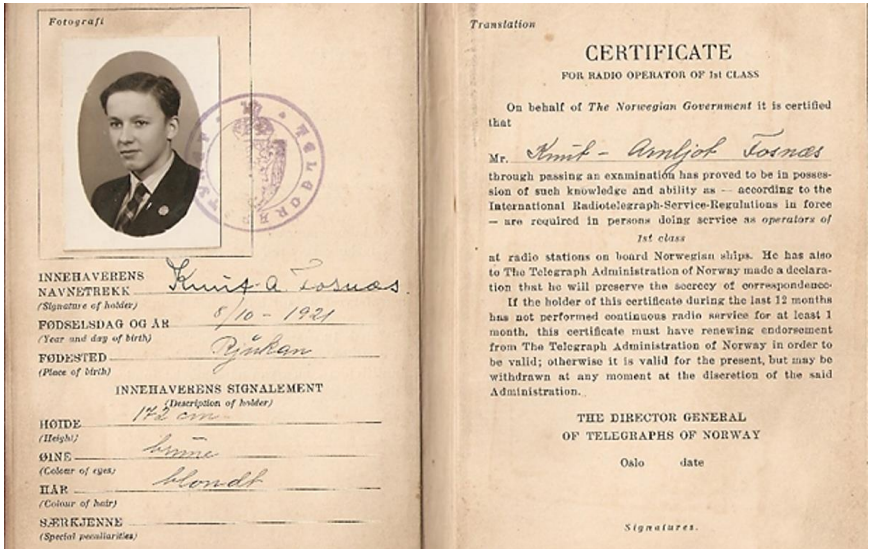 Fotografi
TELEGRAFSTYRET
INNEHAVERENS
NAVNETREKK Knut A. Fosnæs.
(Signature of holder)
FØDSELSDAG OG ÅR 8/10 - 1921
(Year and day of birth)
FØDESTED Rjukan
(Place of birth)
INNEHAVERENS SIGNALEMENT
(Description of holder)
HØIDE 172 cm
(Height)
ØINE brune
(Colour of eyes)
HÅR blondt
(Colour of hair)
SÆRKJENNE
(Special peculiarities)
Translation
CERTIFICATE
FOR RADIO OPERATOR OF 1st CLASS
On behalf of The Norwegian Government it is certified
that
Mr. Knut - Arnljot Fosnæs
through passing an examination has proved to be in posses-
sion of such knowledge and ability as — according to the
International Radiotelegraph-Service-Regulations in force
— are required in persons doing service as operators of
1st class
at radio stations on board Norwegian ships. He has also
to The Telegraph Administration of Norway made a declara-
tion that he will preserve the secrecy of correspondence.
If the holder of this certificate during the last 12 months
has not performed continuous radio service for at least 1
month, this certificate must have renewing endorsement
from The Telegraph Administration of Norway in order to
be valid; otherwise it is valid for the present, but may be
withdrawn at any moment at the discretion of the said
Administration.
THE DIRECTOR GENERAL
OF TELEGRAPHS OF NORWAY
Oslo date
Signatures.